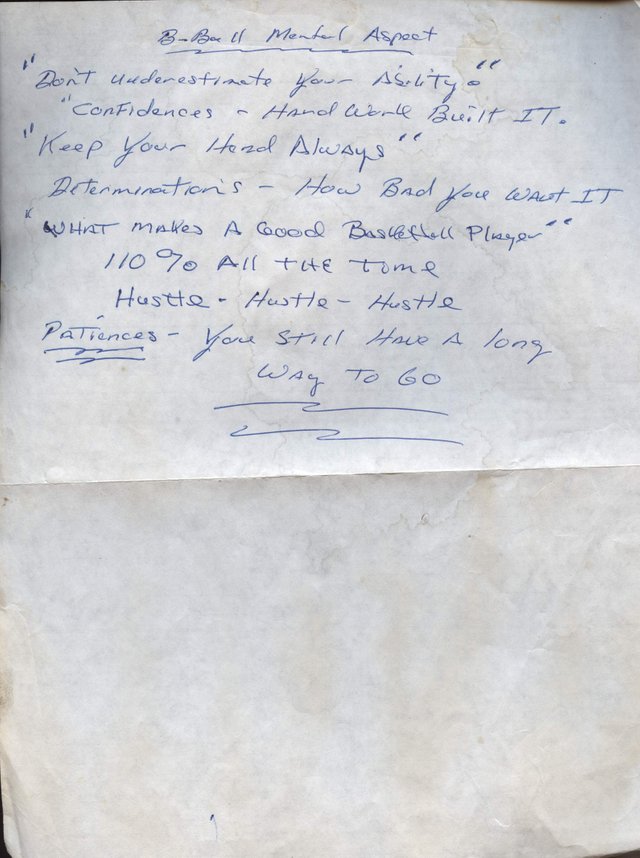 B-Ball Mental Aspect
"Don't underestimate Your Ability."
"Confidences - Hard Work Built IT.
"Keep Your Head Always"
Determination's - How Bad you WANT IT
"WHAT MAKES A Good Basketball Player"
110% All THE TIME
Hustle - Hustle - Hustle
Patiences - You Still Have A long
Way To GO